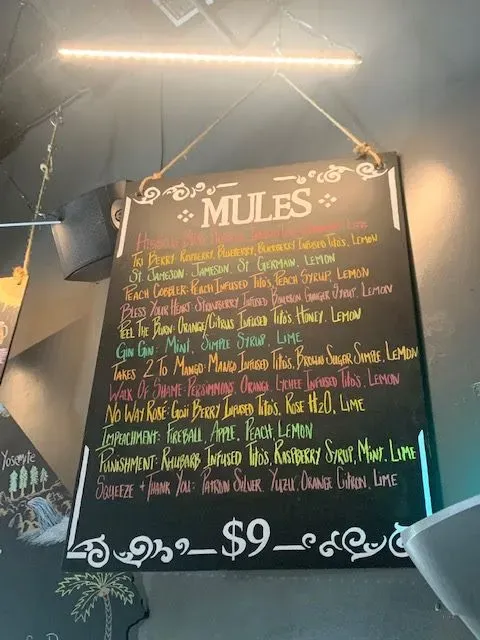 MULES
TRI BERRY: RASPBERRY, BLUEBERRY, BLACKBERRY INFUSED TITO'S, LEMON
ST. JAMESON: JAMESON, ST. GERMAIN, LEMON
PEACH COBBLER: PEACH INFUSED TITO'S, PEACH SYRUP, LEMON
BLESS YOUR HEART: STRAWBERRY INFUSED BOURBON GINGER SYRUP, LEMON
PEEL THE BURN: ORANGE/CITRUS INFUSED TITO'S, HONEY, LEMON
GIN GIN: MINT, SIMPLE SYRUP, LIME
TAKES 2 TO MANGO: MANGO INFUSED TITO'S, BROWN SUGAR SIMPLE, LEMON
WALK OF SHAME: PERSIMMONS, ORANGE LYCHEE INFUSED TITO'S, LEMON
NO WAY ROSÉ: GOJI BERRY INFUSED TITO'S, ROSE H2O, LIME
IMPEACHMENT: FIREBALL, APPLE, PEACH, LEMON
PANISHMENT: RHUBARB INFUSED TITO'S RASPBERRY SYRUP, MINT, LIME
SQUEEZE + THANK YOU: PATRON SILVER, YUZU, ORANGE CITRON, LIME
$9
Yosemite